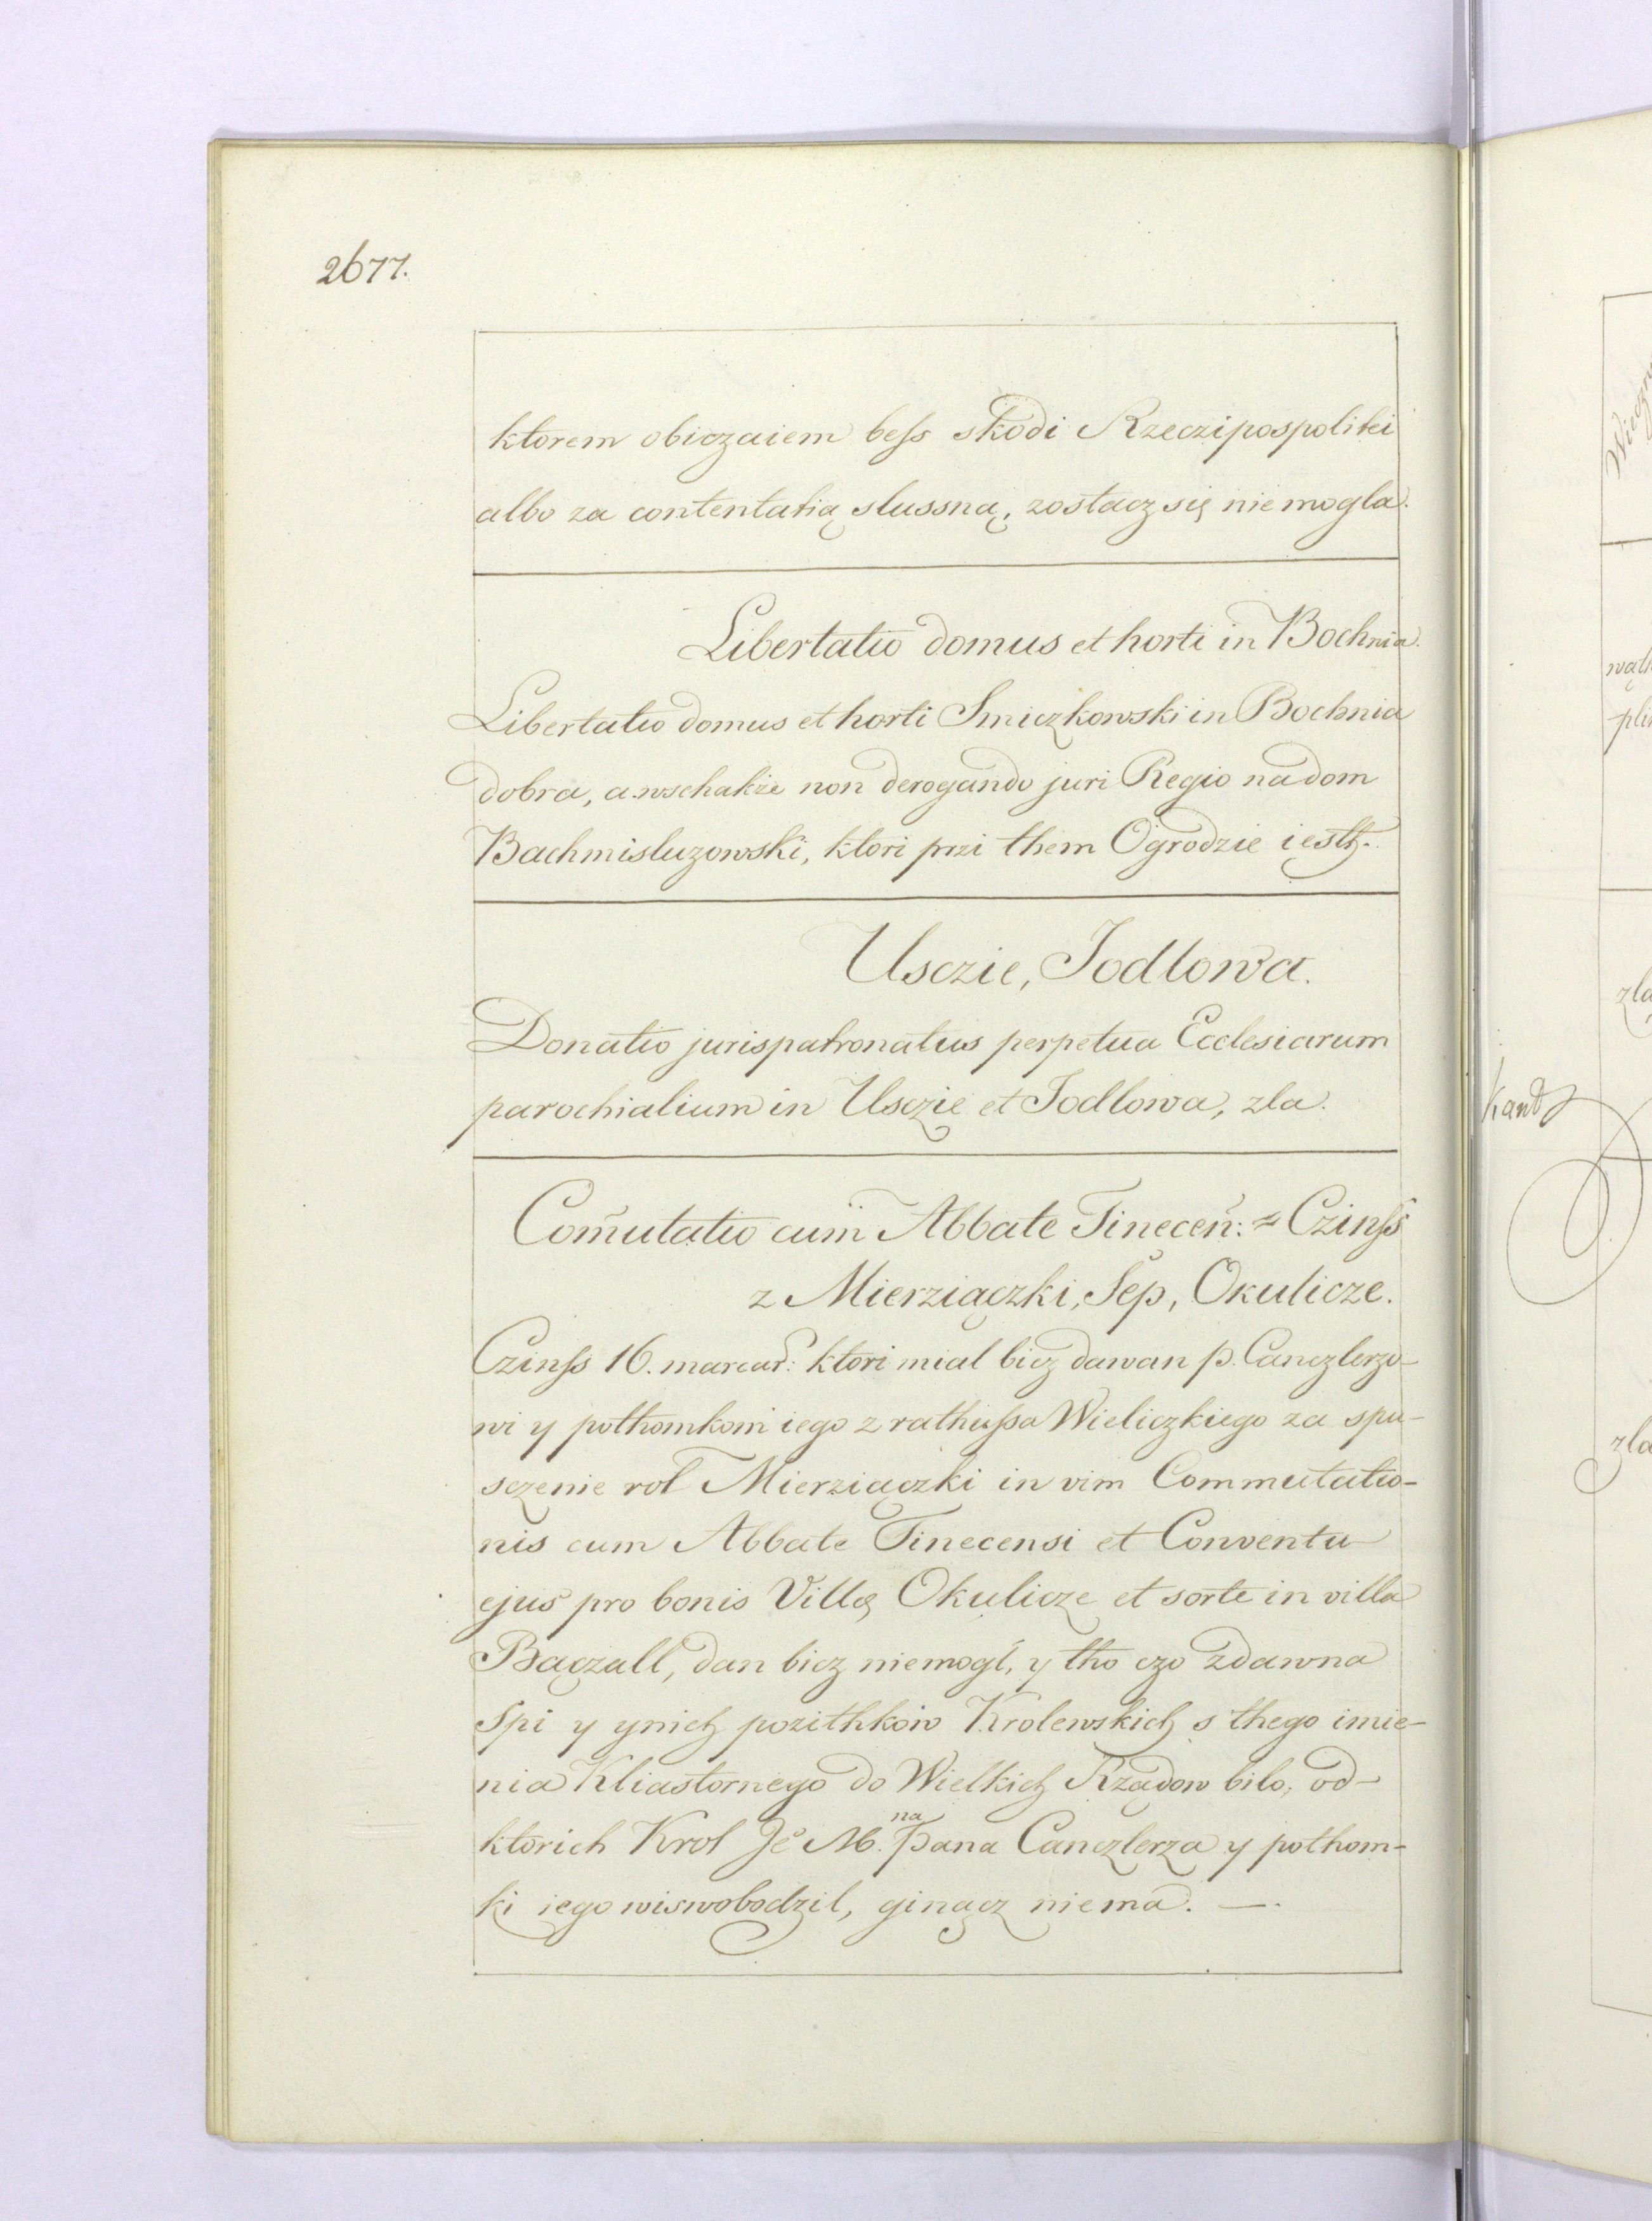 2677.
ktorem obiczaiem bess skodi Rzeczipospolitei
albo za contentatią slussną, zostacz się nie mogla.
Libertatio domus et horti in Bochnia.
Libertatio domus et horti Smiczkowski in Bochnia
dobra, a wschakże non derogando juri Regio na dom
Bachmisluzowski, ktori przi them Ogrodzie iesth.
Usczie, Jodlowa.
Donatio jurispatronatus perpetua Ecclesiarum
parochialium in Usczie et Jodlowa, zla.
Com̃utatio cum Abbate Tinecen̄: Czinss
z Mierziączki, Sep, Okulicze.
Czinss 16. marcar: ktori mial bicz dawan p. Canczlerzo-
wi y pothomkom iego z rathussa Wieliczkiego za spu-
sczenie rol Mierziączki in vim Commutatio-
nis cum Abbate Tinecensi et Conventu
ejus pro bonis Villę Okulicze et sorte in villa
Bączall, dan bicz niemogł, y tho czo zdawna
Spi y ynich pozithków Krolewskich s thego imie-
nia Kliastornego do Wielkich Rządow bilo, od-
ktorich Krol Je° M. na pana Canczlerza y pothom-
ki iego wiswobodzil, ginącz niema. —.
zla
zla